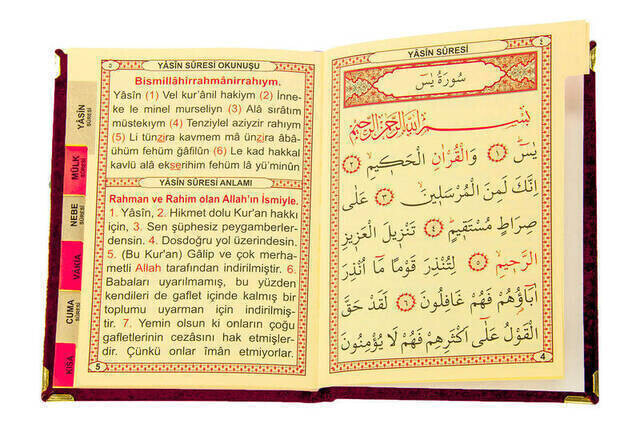 YÂSÎN SÛRESİ
٤
سُورَةُ يٰسٓ
بِسْمِ اللّٰهِ الرَّحْمٰنِ الرَّحِيمِ
يٰسٓ ﴿١﴾ وَالْقُرْاٰنِ الْحَكِيمِ ﴿٢﴾
اِنَّكَ لَمِنَ الْمُرْسَلِينَ ﴿٣﴾ عَلٰى
صِرَاطٍ مُسْتَقِيمٍ ﴿٤﴾ تَنْزِيلَ الْعَزِيزِ
الرَّحِيمِ ﴿٥﴾ لِتُنْذِرَ قَوْمًا مَٓا اُنْذِرَ
اٰبَٓاؤُ۬هُمْ فَهُمْ غَافِلُونَ ﴿٦﴾ لَقَدْ حَقَّ
الْقَوْلُ عَلٰٓى اَكْثَرِهِمْ فَهُمْ لَا يُؤْمِنُونَ
4
YÂSÎN SÛRESİ OKUNUŞU
٥
Bismillâhirrahmânirrahıym.
Yâsîn (1) Vel kur'ânil hakiym (2) İnne-
ke le minel murseliyn (3) Alâ sırâtım
müstekıym (4) Tenziylel aziyzir rahıym
(5) Li tünzira kavmem mâ ünzira âbâ-
ühüm fehüm gâfilûn (6) Le kad hakkal
kavlü alâ ekserihim fehüm lâ yü'minûn
YÂSÎN SÛRESİ ANLAMI
Rahman ve Rahim olan Allah'ın İsmiyle.
1. Yâsîn, 2. Hikmet dolu Kur'an hakkı
için, 3. Sen şüphesiz peygamberler-
densin. 4. Dosdoğru yol üzerindesin.
5. (Bu Kur'an) Gâlip ve çok merha-
metli Allah tarafından indirilmiştir. 6.
Babaları uyarılmamış, bu yüzden
kendileri de gaflet içinde kalmış bir
toplumu uyarman için indirilmiş-
tir. 7. Yemin olsun ki onların çoğu
gafletlerinin cezasını hak etmişler-
dir. Çünkü onlar îmân etmiyorlar.
5
YÂSÎN
SÛRESİ
MÜLK
SÛRESİ
NEBE
SÛRESİ
VÂKIA
CUMA
SÛRESİ
KISA